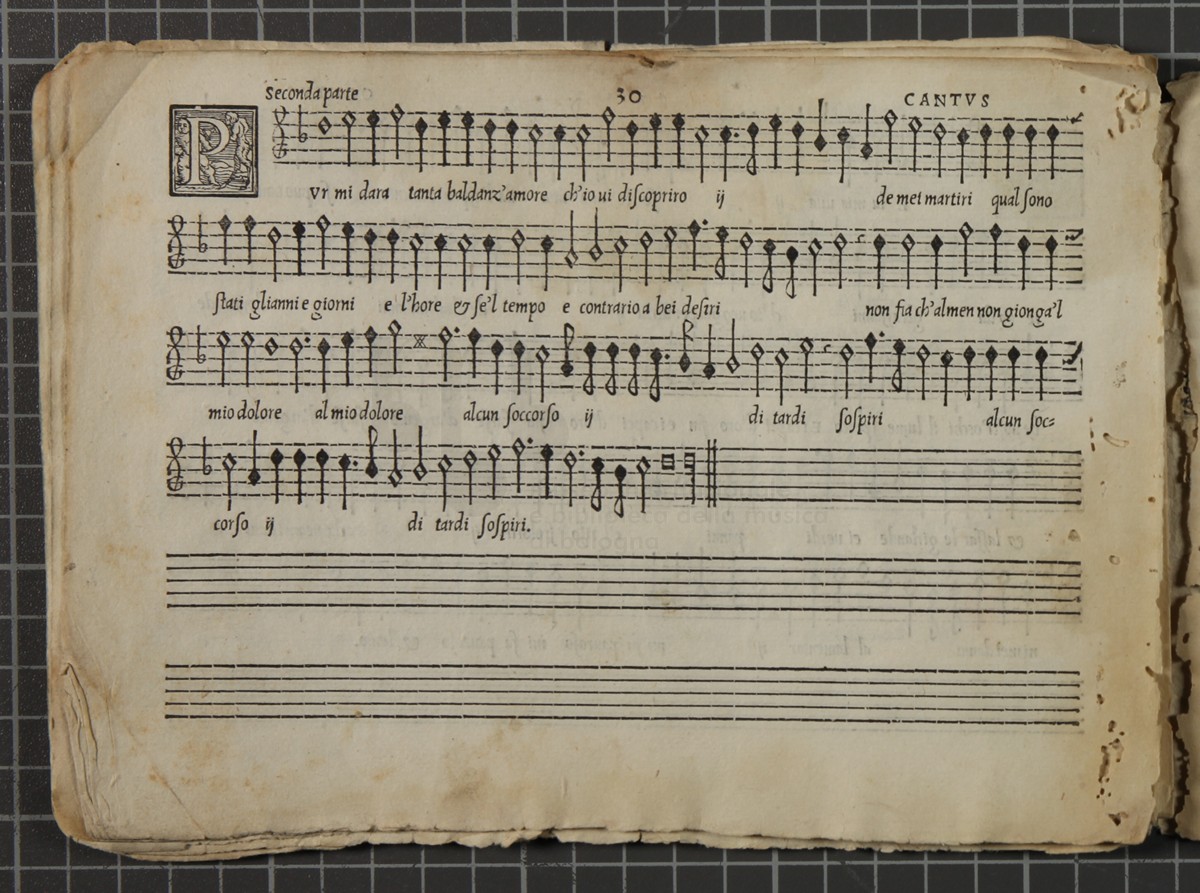 Seconda parte 30 CANTVS
PVr mi dara tanta baldanz'amore ch'io ui discopriro ij de mei martiri qual sono
stati gli anni e giorni e l'hore & se'l tempo e contrario a bei desiri non fia ch'almen non gionga'l
mio dolore al mio dolore alcun soccorso ij di tardi sospiri alcun soc=
corso ij di tardi sospiri.
e biblioteca della musica
di bologna